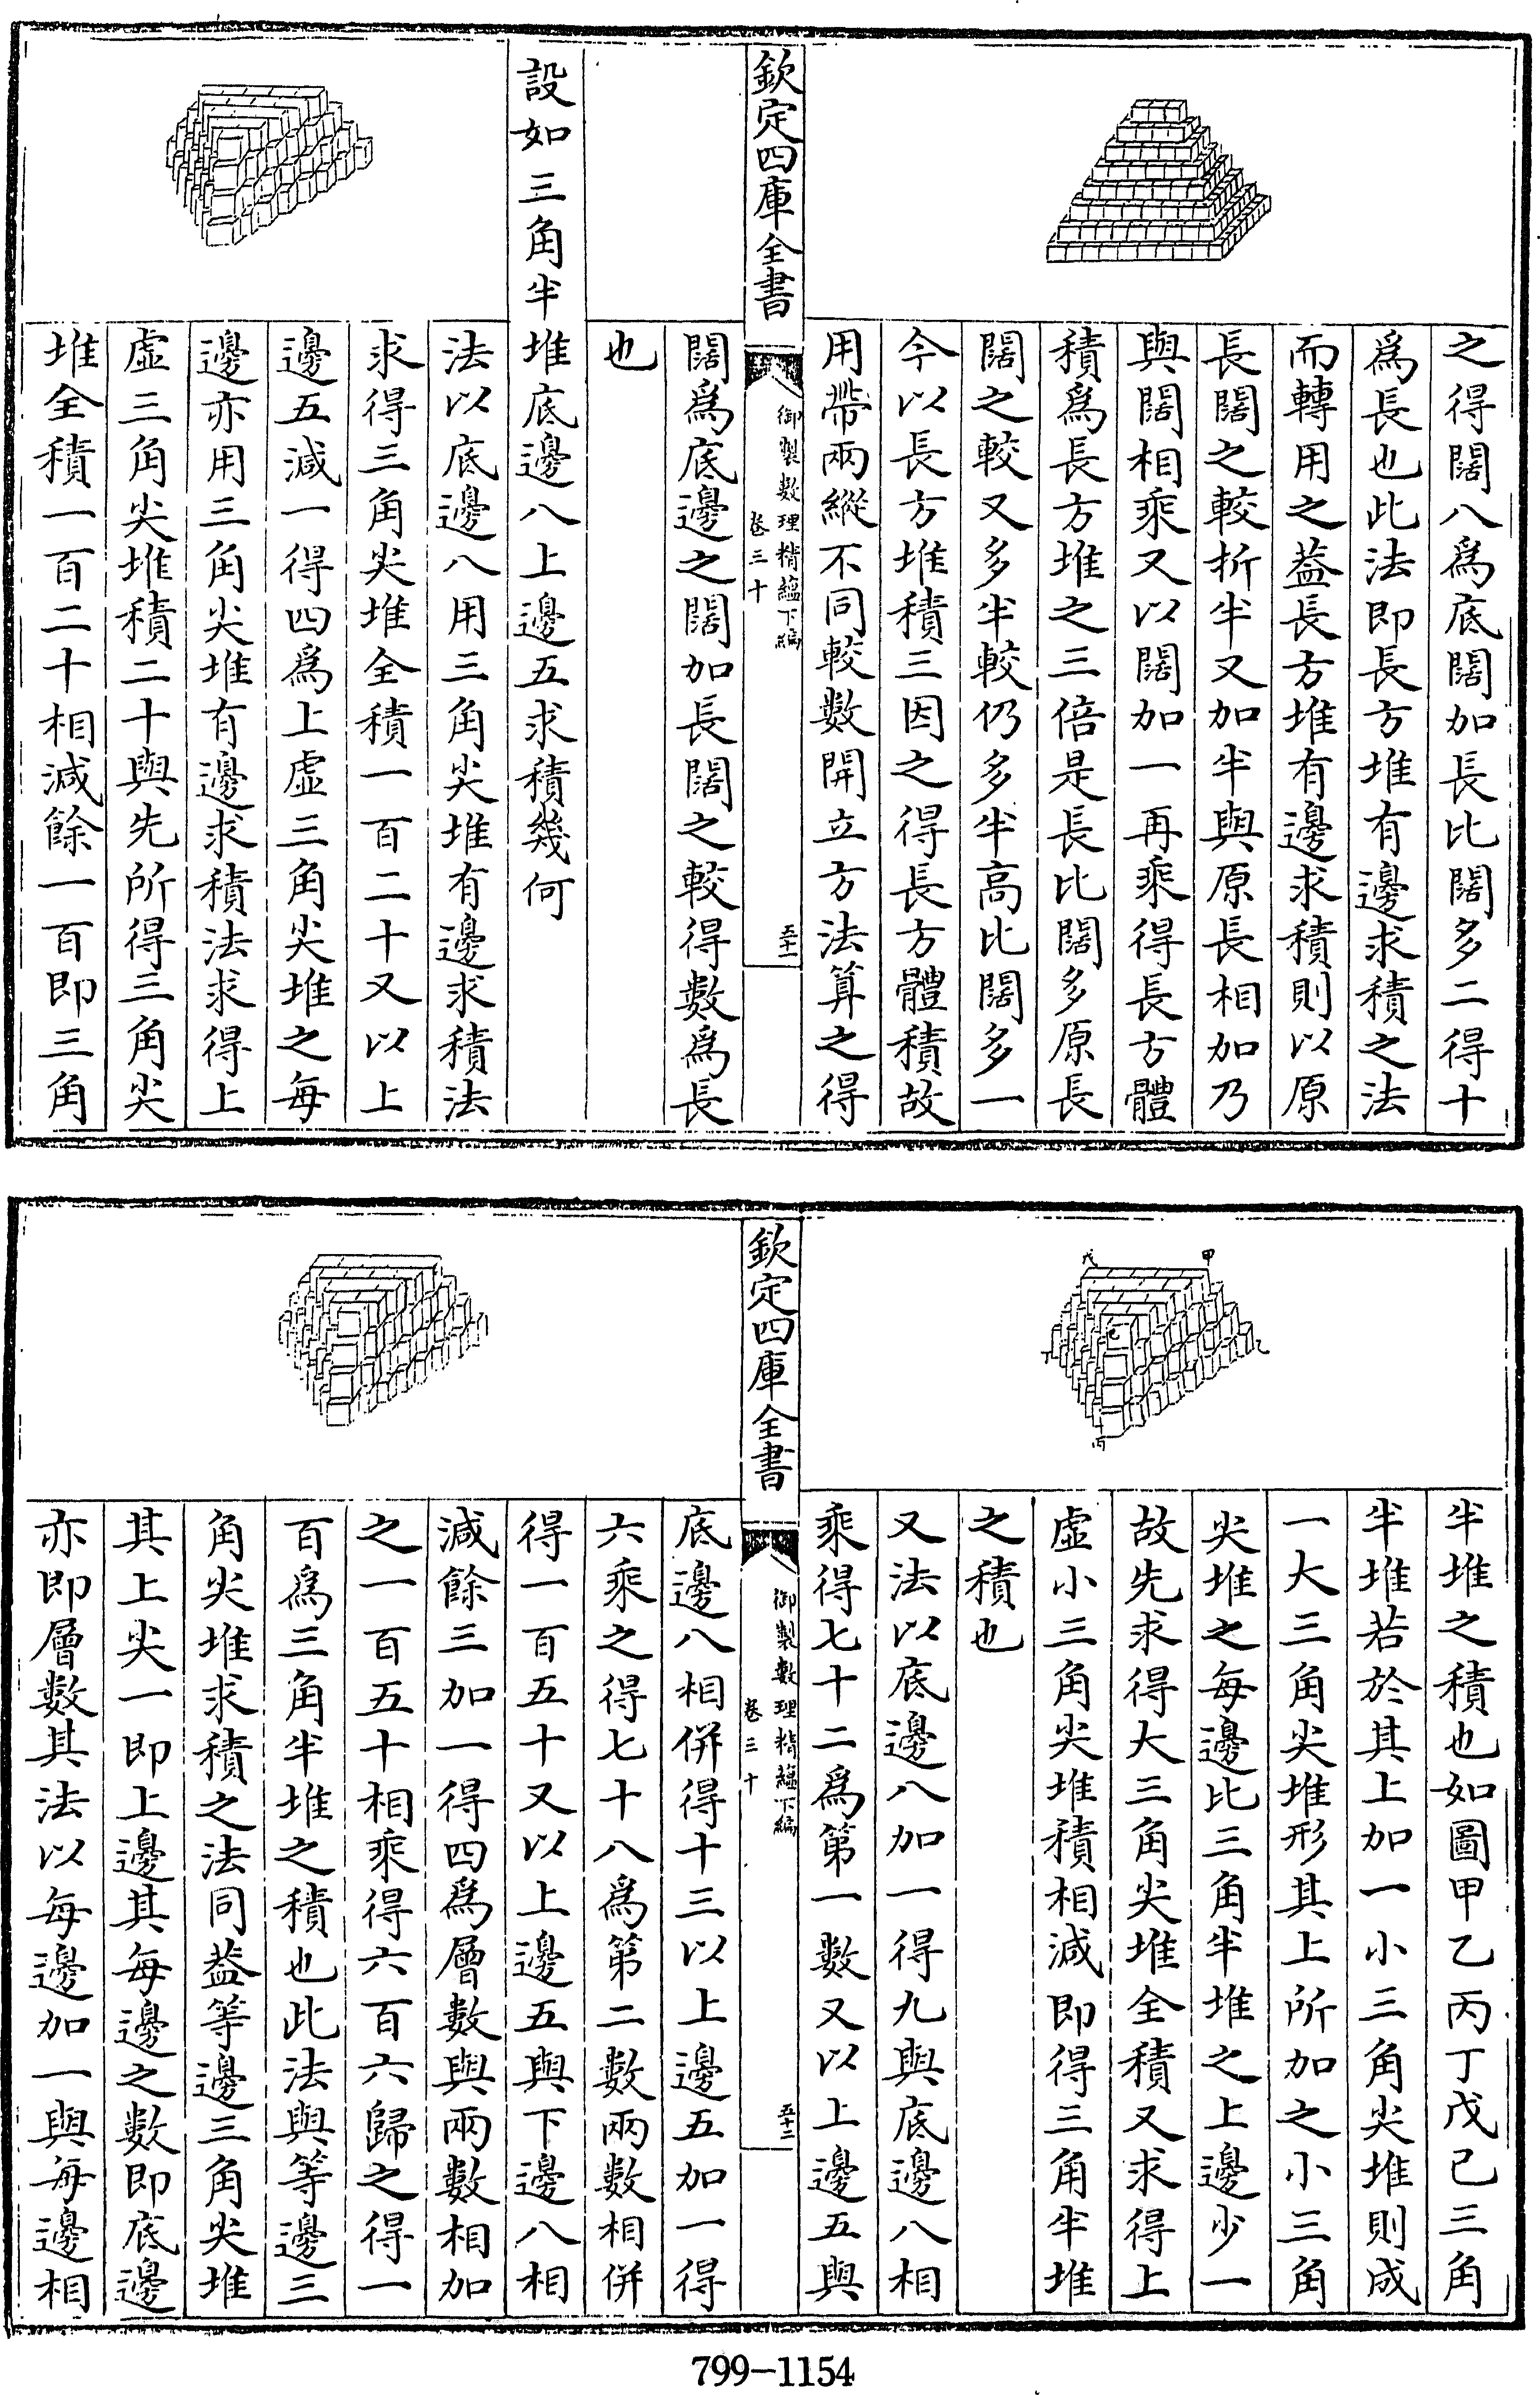 之得闊八爲底闊加長比闊多二得十
爲長也此法即長方堆有邊求積之法
而轉用之葢長方堆有邊求積則以原
長闊之較折半又加半與原長相加乃
與闊相乘又以闊加一再乘得長方體
積爲長方堆之三倍是長比闊多原長
闊之較又多半較仍多半高比闊多一
今以長方堆積三因之得長方體積故
用帶兩縱不同較數開立方法算之得
欽定四庫全書
御製數理精蘊下編
卷三十
五十一
闊爲底邊之闊加長闊之較得數爲長
也
設如三角半堆底邊八上邊五求積幾何
法以底邊八用三角尖堆有邊求積法
求得三角尖堆全積一百二十又以上
邊五減一得四爲上虛三角尖堆之每
邊亦用三角尖堆有邊求積法求得上
虛三角尖堆積二十與先所得三角尖
堆全積一百二十相減餘一百即三角
甲
戊
己
乙
丁
丙
半堆之積也如圖甲乙丙丁戊己三角
半堆若於其上加一小三角尖堆則成
一大三角尖堆形其上所加之小三角
尖堆之每邊比三角半堆之上邊少一
故先求得大三角尖堆全積又求得上
虛小三角尖堆積相減即得三角半堆
之積也
又法以底邊八加一得九與底邊八相
乘得七十二爲第一數又以上邊五與
欽定四庫全書
御製數理精蘊下編
卷三十
五十二
底邊八相併得十三以上邊五加一得
六乘之得七十八爲第二數兩數相併
得一百五十又以上邊五與下邊八相
減餘三加一得四爲層數與兩數相加
之一百五十相乘得六百六歸之得一
百爲三角半堆之積也此法與等邊三
角尖堆求積之法同葢等邊三角尖堆
其上尖一即上邊其每邊之數即底邊
亦即層數其法以每邊加一與每邊相
799-1154